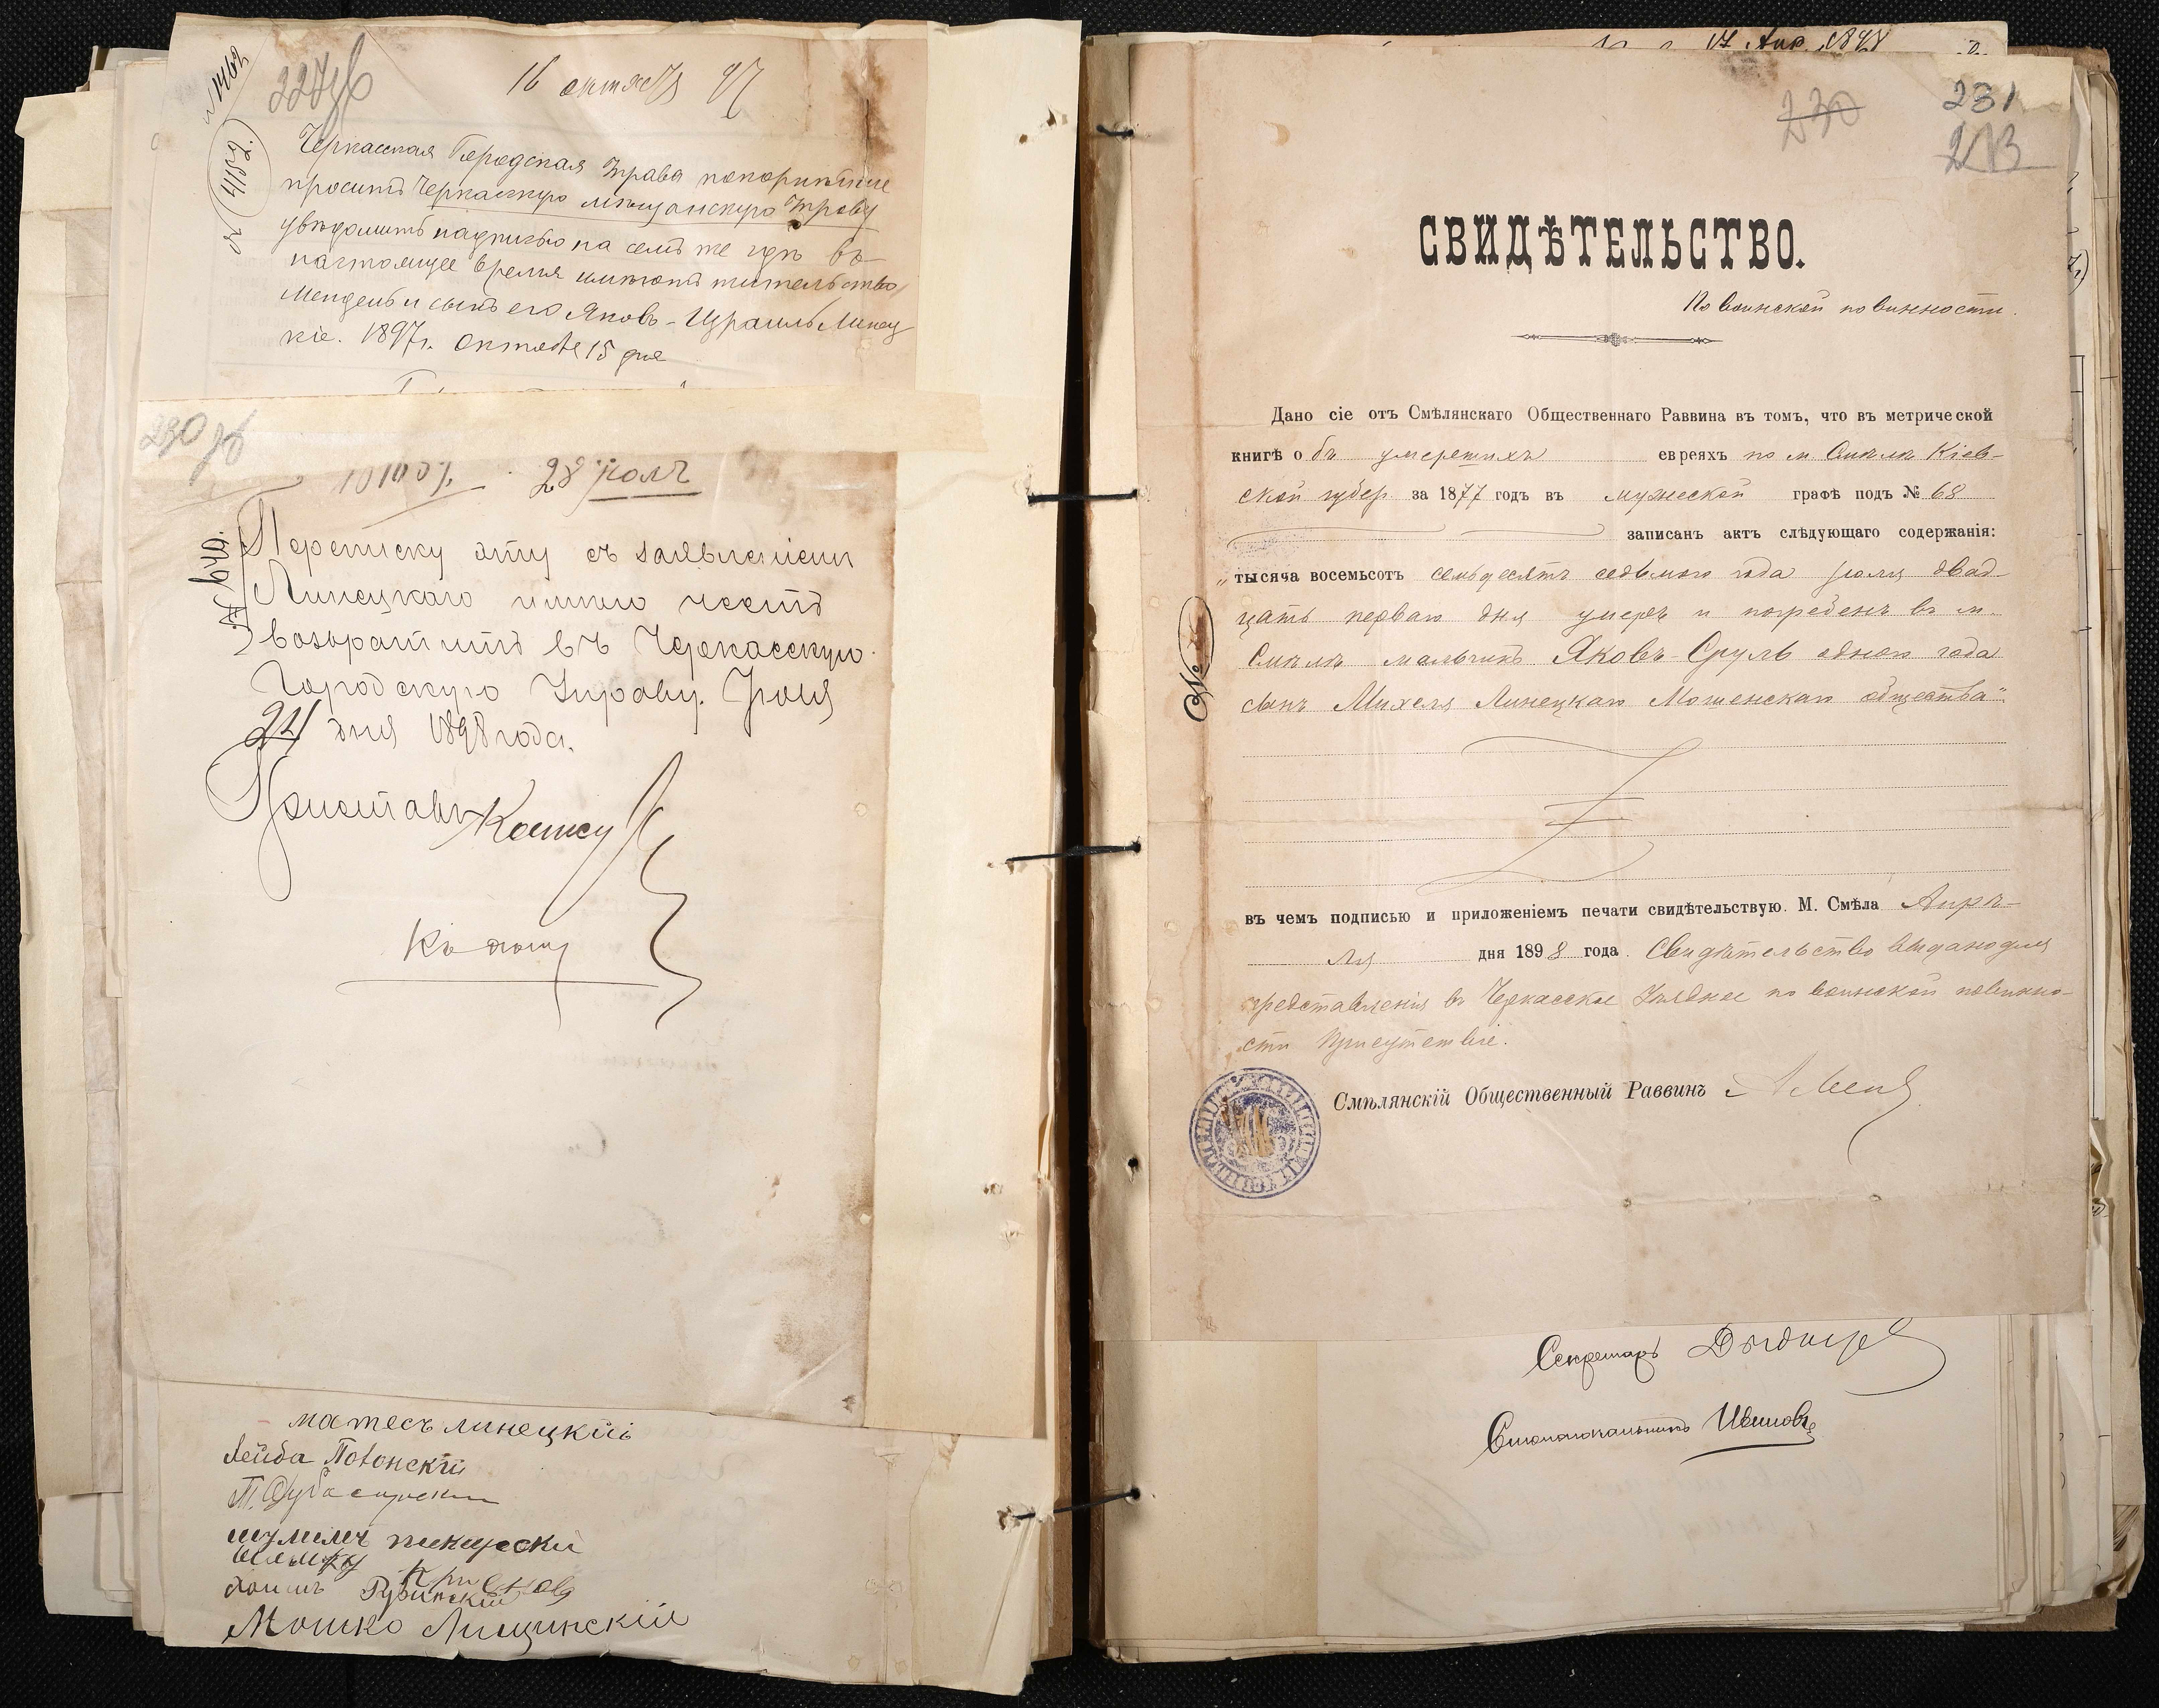 16 октября 97
227об
Черкасская Городская Управа покорнѣйше
проситъ Черкасскую мѣщанскую Управу
увѣдомить надписью на семъ же гдѣ въ
настоящее время имѣютъ жительство
Мендель и сынъ его Яковъ-Израиль Линец
кіе. 1897 г. Октября 15 дня
230 об
28 юля
Переписку эту съ заявленіемъ
Линецкаго имѣю честь
возвратить въ Черкасскую
Городскую Управу. Іюля
24 дня 1898 года.
Приставъ
Къ дѣлу
матесъ линецкій
Лейба
шумилъ пекарскій
хаимъ Рубинскій
Мошко Лищинскій
17 Апр. 1898
230
231
213
СВИДѢТЕЛЬСТВО.
По воинской повинности.
Дано сіе отъ Смѣлянскаго Общественнаго Раввина въ томъ, что въ метрической
книгѣ объ умершихъ евреяхъ по м Смѣлѣ Кіев-
ской губер. за 1877 годъ въ мужеской графѣ подъ № 68
записанъ актъ слѣдующаго содержанія:
„тысяча восемьсотъ семьдесятъ седьмого года юля двад-
цать перваго дня умеръ и погребенъ въ м.
Смѣлѣ мальчикъ Яковъ-Сруль одного года
сынъ Михеля Линецкаго Мошенскаго общества".
№
въ чемъ подписью и приложеніемъ печати свидѣтельствую. М. Смѣла Апрѣ-
ля дня 1898 года. Свидѣтельство выдано для
представленія въ Черкасское Уѣздное по воинской повинно-
сти Присутствіе.
Смѣлянскій Общественный Раввинъ
Секретарь
Столоначальникъ